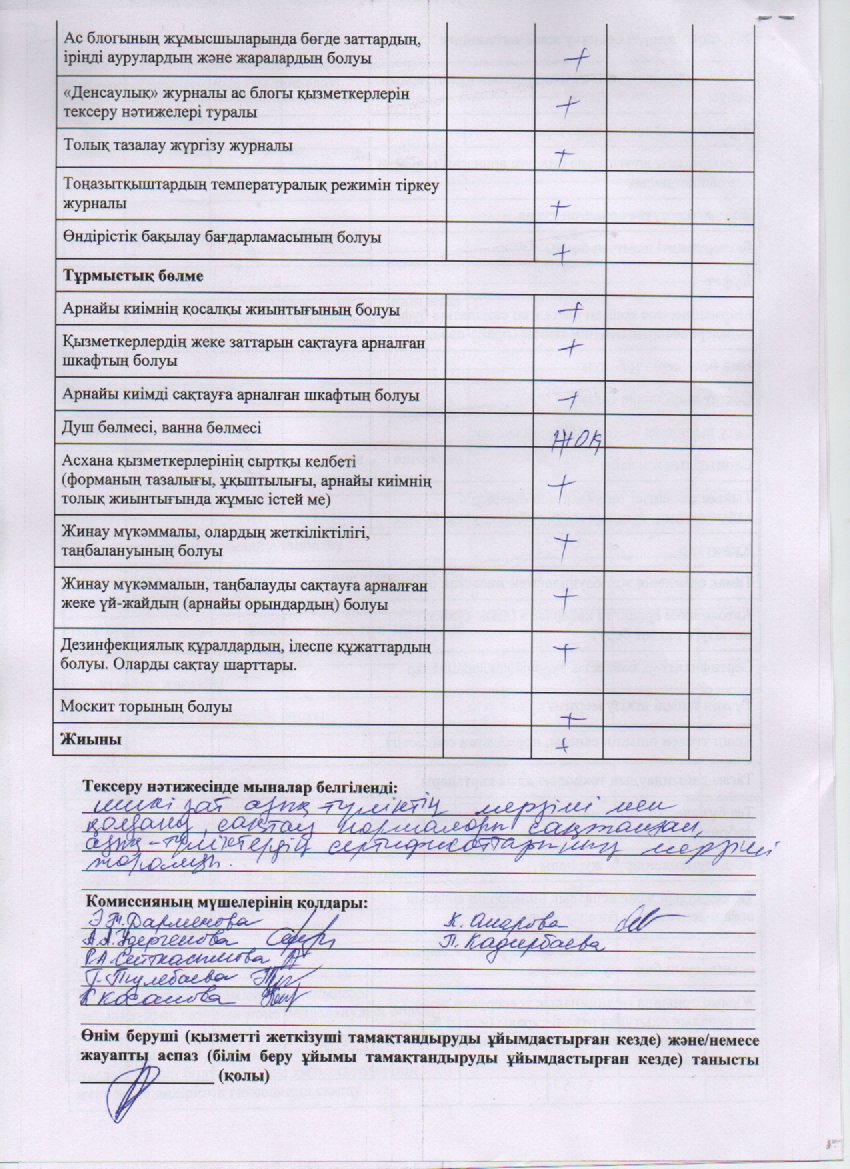 Ас блогының жұмысшыларында бөгде заттардың,
іріңді аурулардың және жаралардың болуы +
«Денсаулық» журналы ас блогы қызметкерлерін
тексеру нәтижелері туралы +
Толық тазалау жүргізу журналы +
Тоңазытқыштардың температуралық режимін тіркеу
журналы +
Өндірістік бақылау бағдарламасының болуы +
Тұрмыстық бөлме
Арнайы киімнің қосалқы жиынтығының болуы +
Қызметкерлердің жеке заттарын сақтауға арналған
шкафтың болуы +
Арнайы киімді сақтауға арналған шкафтың болуы +
Душ бөлмесі, ванна бөлмесі жоқ
Асхана қызметкерлерінің сыртқы келбеті
(форманың тазалығы, ұқыптылығы, арнайы киімнің
толық жиынтығында жұмыс істей ме) +
Жинау мүкәммалы, олардың жеткіліктілігі,
таңбалануының болуы +
Жинау мүкәммалын, таңбалауды сақтауға арналған
жеке үй-жайдың (арнайы орындардың) болуы +
Дезинфекциялық құралдардың, ілеспе құжаттардың
болуы. Оларды сақтау шарттары. +
Москит торының болуы +
Жиыны +
Тексеру нәтижесінде мыналар белгіленді:
шикі зат азық-түліктің мерзімі мен
сақтау нормалары сақталған,
азық-түліктердің сертификаттарының мерзімі
жарамды.
Комиссияның мүшелерінің қолдары:
Дарменова К. Омарова
П. Кадирбаева
Сейткасимова
Г. Тулебаева
Косанова
Өнім беруші (қызметті жеткізуші тамақтандыруды ұйымдастырған кезде) және/немесе
жауапты аспаз (білім беру ұйымы тамақтандыруды ұйымдастырған кезде) танысты
(қолы)